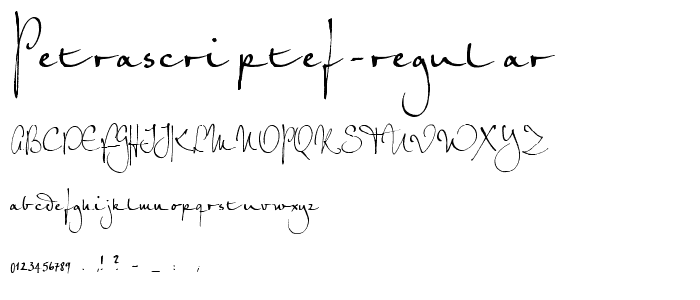 Petrascriptef-regular
ABCDEFGHIJKLMNOPQRSTUVWXYZ
abcdefghijklmnopqrstuvwxyz
0123456789 . , ! ? - _ : ,